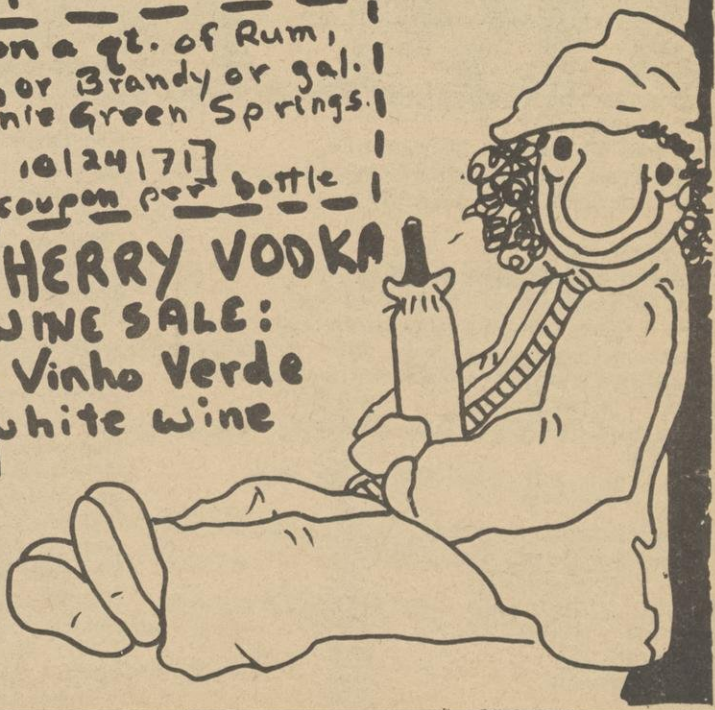 on a qt. of Rum,
or Brandy or gal.
Green Springs.
10/24/71]
coupon per bottle
HERRY VODKA
WINE SALE:
Vinho Verde
white wine